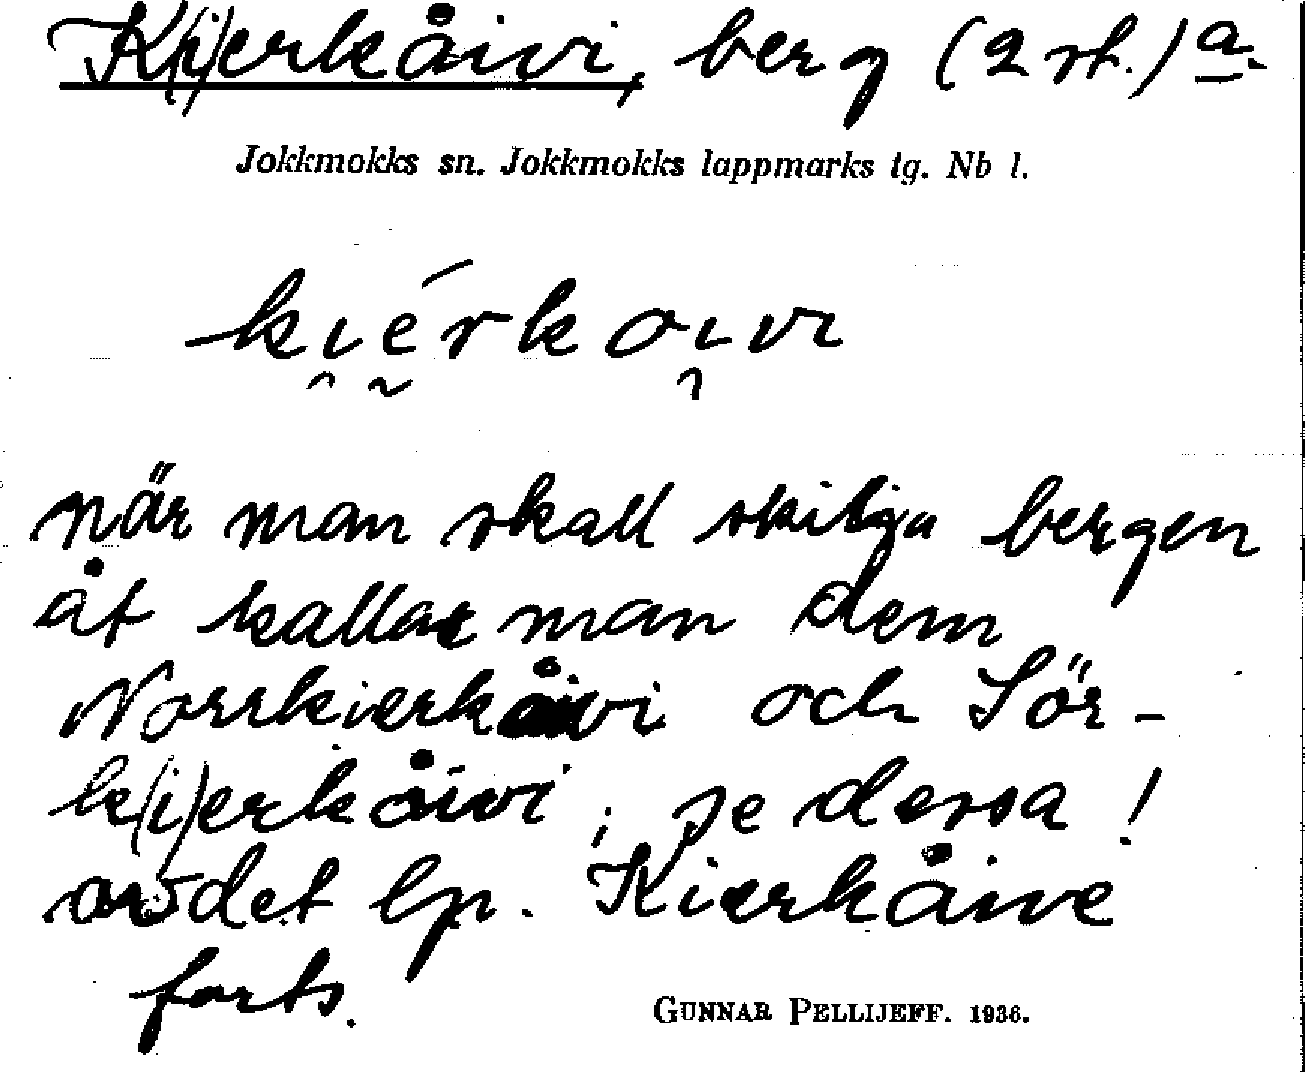 K(i)erkåivi, berg (2 st.) a.
Jokkmokks sn. Jokkmokks lappmarks tg. Nb l.
kiérkoivi
när man skall skilja bergen
åt kallar man dem
Norrkierkåivi och Sör-
k(i)erkåivi; se dessa!
ordet lp. Kierkåive
forts.
GUNNAR PELLIJEFF. 1936.